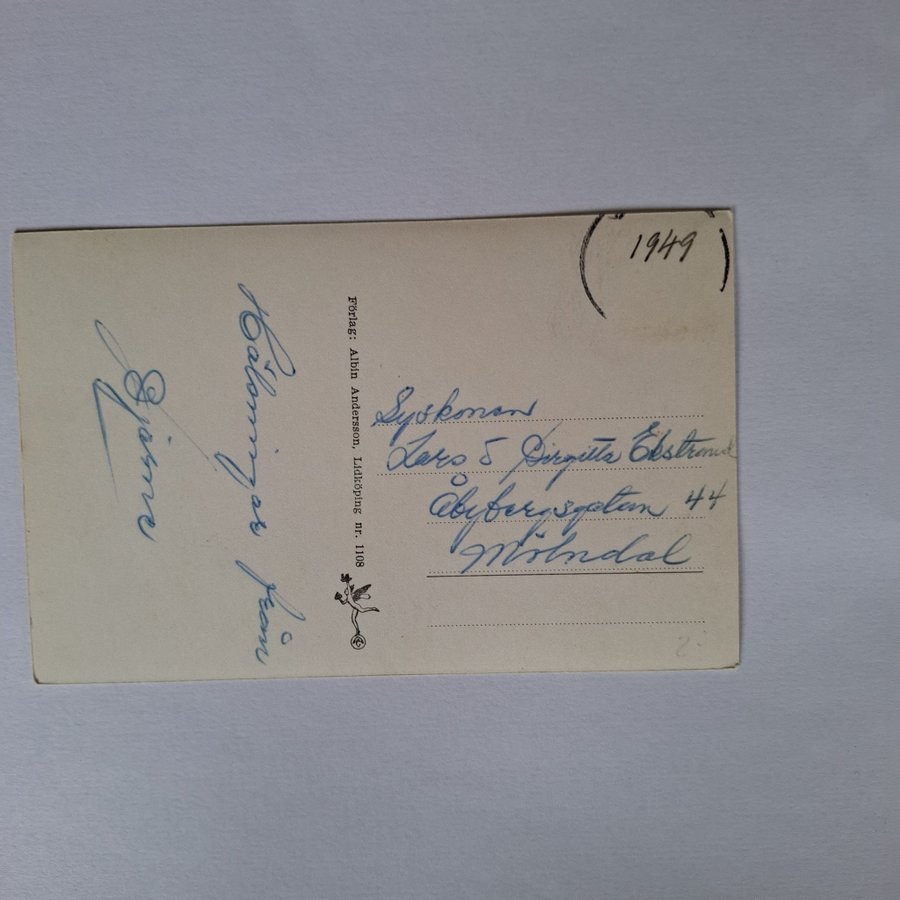 Hälsningar från
Förlag: Albin Andersson, Lidköping nr. 1108
1949
Syskonen
Lars & Birgitta Ekstrand
Åbybergsgatan 44
Mölndal